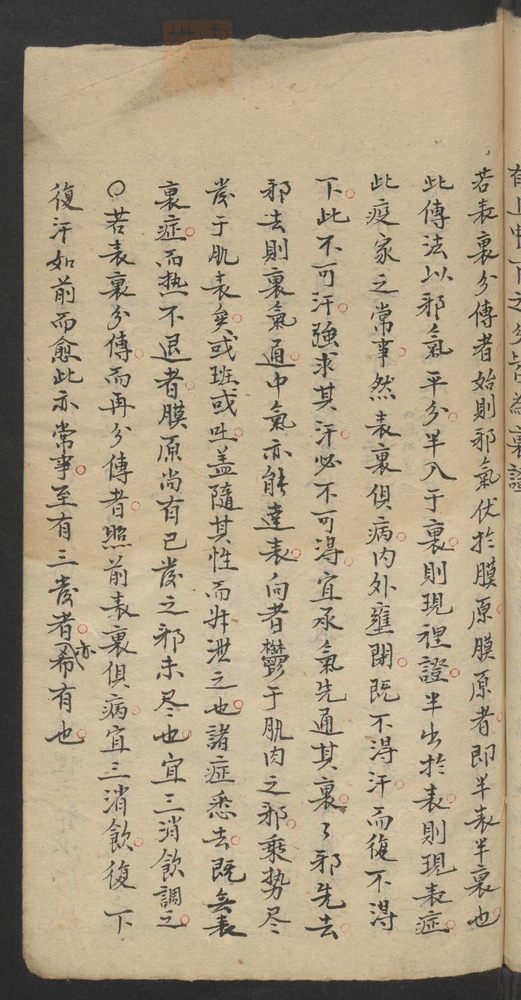 若表裏分傳者始則邪氣伏於膜原膜原者即半表半裏也
此傳法以邪氣平分半入于裏則現裡證半出於表則現表症
此疫家之常事然表裏俱病内外壅閉既不得汗而復不得
下此不可汗強求其汗必不可得宜承氣先通其裏了邪先去
邪去則裏氣通中氣亦能達表向者鬱于肌肉之邪乘势尽
發于肌表矣或班或吐盖隨其性而升泄之也諸症悉去既無表
裏症而热不退者膜原尚有已發之邪未尽也宜三消飲調之
〇若表裏分傳而再分傳者照前表裏俱病宜三消飲復下
復汗如前而愈此亦常事至有三發者亦希有也